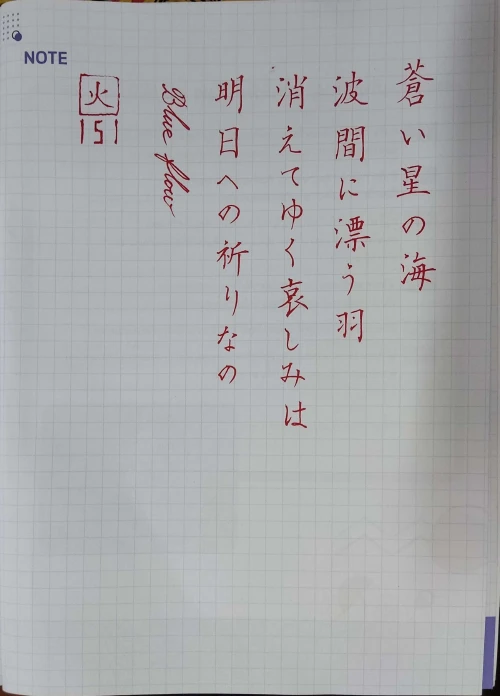 NOTE
蒼い星の海
波間に漂う羽
消えてゆく哀しみは
明日への祈りなの
Blue flow
火
151